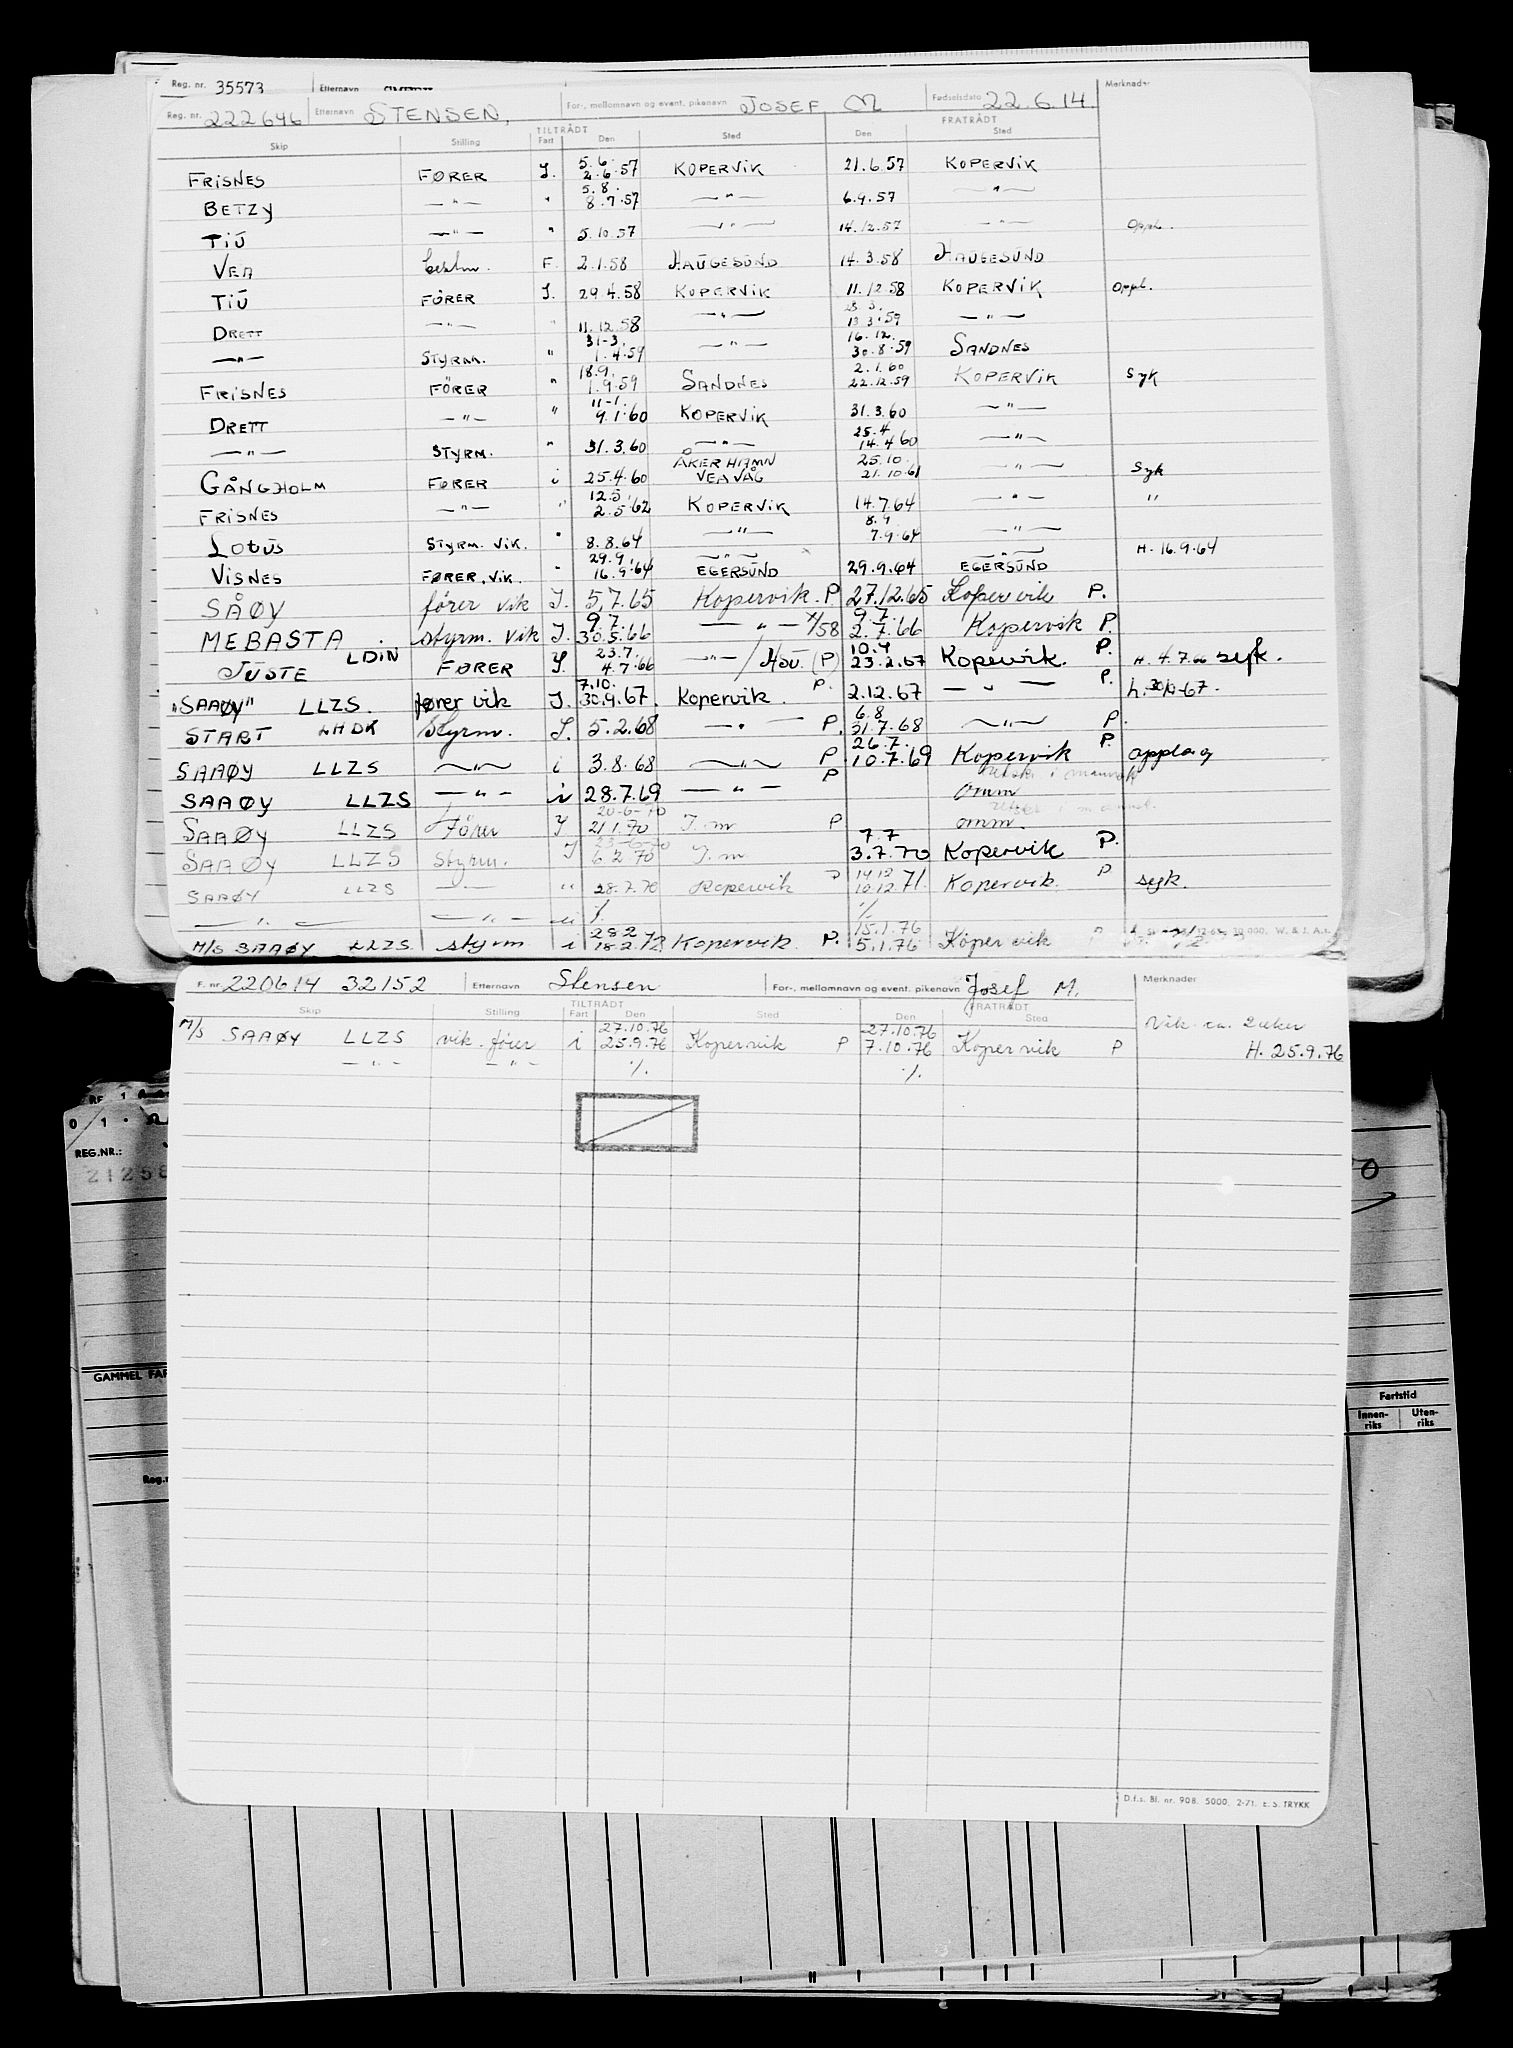 Reg. nr. 35573 Etternavn
Merknader
Reg. nr. 222646 Etternavn STENSEN, For-, mellomnavn og event. pikenavn JOSEF M Fødselsdato 22.6.14.
TILTRÅDT FRATRÅDT
Skip Stilling Fart Den Sted Den Sted
5.6.
FRISNES FØRER I. 2.6.57 KOPERVIK 21.6.57 KOPERVIK
5.8.
BETZY —"— " 8.7.57 —"— 6.9.57 —"—
TIU —"— " 5.10.57 —"— 14.12.57 —"— Oppl.
VEA bestm. F. 2.1.58 HAUGESUND 14.3.58 HAUGESUND
TIU FØRER I. 29.4.58 KOPERVIK 11.12.58 KOPERVIK Oppl.
DRETT —"— " 11.12.58 —"— 13.3.59 —"—
31-3. 16.12.
—"— STYRM. " 1.4.59 —"— 30.8.59 SANDNES
18.9. 2.1.60
FRISNES FØRER " 1.9.59 SANDNES 22.12.59 KOPERVIK Syk
11-1.
DRETT —"— " 9.1.60 KOPERVIK 31.3.60 —"—
25.4
—"— STYRM. " 31.3.60 —"— 14.4.60 —"—
ÅKERHAMN 25.10.
GÅNGHOLM FØRER i 25.4.60 VEAVÅG 21.10.61 —"— Syk
12.5.
FRISNES —"— " 2.5.62 KOPERVIK 14.7.64 —"— "
LOTUS STYRM. VIK. " 8.8.64 —"— 7.9.64 —"—
29.9. H. 16.9.64
VISNES FØRER. VIK. " 16.9.64 EGERSUND 29.9.64 EGERSUND
SÅØY fører vik I. 5.7.65 Kopervik. P. 27.12.65 Kopervik P.
9.7. 9.7.
MEBASTA. styrm. vik I. 30.5.66 —"— 2.7.66 Kopervik P.
23.7. 10.4
JUSTE LDIN FØRER I. 4.7.66 —"— (P) 23.2.67 Kopervik. P. H. 4.7.66 syk.
7.10.
"SAAØY" LLZS. fører vik I. 30.9.67. Kopervik. P. 2.12.67 —"— P.
6.8
START LHDK Styrm. I. 5.2.68 —"— P. 31.7.68 —"— P.
26.7.
SAAØY LLZS —"— i 3.8.68 —"— P 10.7.69 Kopervik P. opplag
SAAØY LLZS —"— i 28.7.69 —"— P omm
20-6-70
SAAØY LLZS Fører I 21.1.70 I.m P omm.
7.7
SAAØY LLZS Styrm. I 6.2.70 I.m 3.7.70 Kopervik P.
14.12
SAAØY LLZS —"— " 28.7.70 Kopervik P 10.12.71. Kopervik. P syk.
—"— —"— " ./. ./.
28.2 15.1.76
M/S SAAØY LLZS styrm i 18.2.73 Kopervik P. 5.1.76 Kopervik P
F. nr. 220614 32152 Etternavn Stensen For-, mellomnavn og event. pikenavn Josef M. Merknader
TILTRÅDT FRATRÅDT
Skip Stilling Fart Den Sted Den Sted
27.10.76 27.10.76 Vik. ca. 2 uker
M/S SAAØY LLZS vik. fører i 25.9.76 Kopervik P 7.10.76 Kopervik P H. 25.9.76
—"— —"— ./. ./.
D.f.s. Bl. nr. 908. 5000. 2-71. E.S. TRYKK
REG.NR.:
GAMMEL FAR
Fartstid
Innen-riks Uten-riks